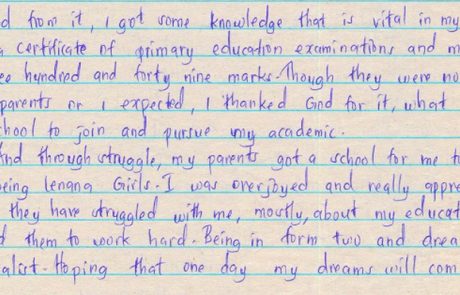 d from it, i got some knowledge that is vital in my
a certificate of primary education examinations and m
ee hundred and forty nine marks. Though they were no
parents or i expected, I thanked God for it, what
chool to join and pursue my academic.
And through struggle, my parents got a school for me t
eing Lenana Girls. I was overjoyed and really appre
they have struggled with me, mostly, about my educat
d them to work hard. Being in form two and drea
alist. Hoping that one day my dreams will com